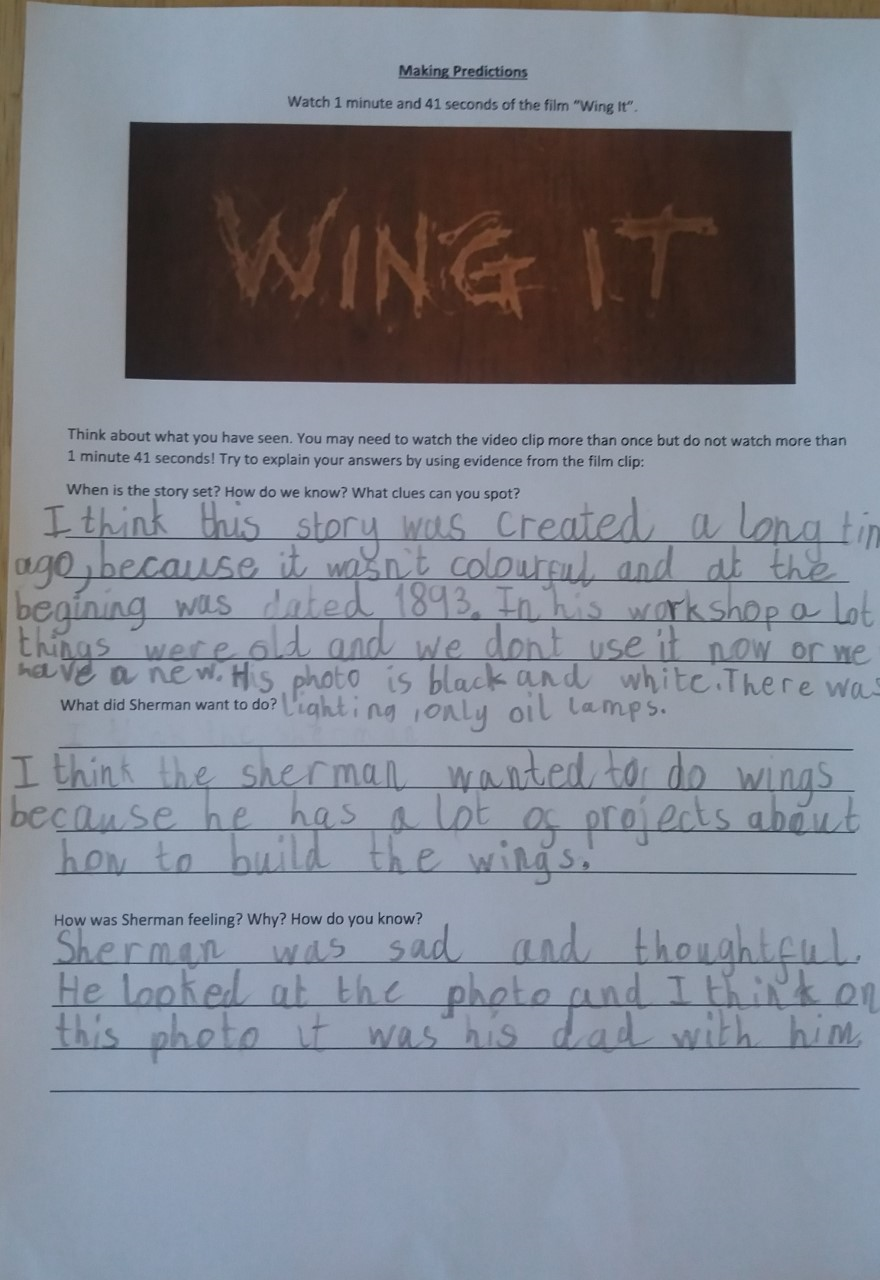 Making Predictions
Watch 1 minute and 41 seconds of the film "Wing It".
WING IT
Think about what you have seen. You may need to watch the video clip more than once but do not watch more than
1 minute 41 seconds! Try to explain your answers by using evidence from the film clip:
When is the story set? How do we know? What clues can you spot?
I think this story was created a long tim
ago, because it wasn't colourful and at the
begining was dated 1893. In his workshop a lot
things were old and we dont use it now or we
have a new. His photo is black and white. There was
What did Sherman want to do? lighting, only oil lamps.
I think the sherman wanted to do wings
because he has a lot of projects about
how to build the wings.
How was Sherman feeling? Why? How do you know?
Sherman was sad and thoughtful.
He looked at the photo and I think on
this photo it was his dad with him.